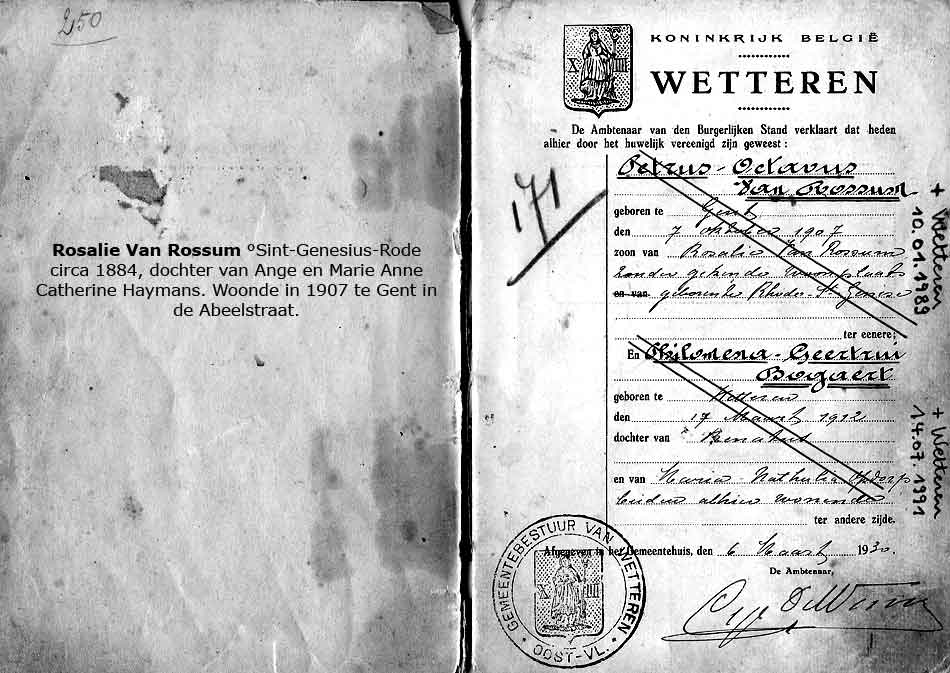 250
Rosalie Van Rossum °Sint-Genesius-Rode
circa 1884, dochter van Ange en Marie Anne
Catherine Haymans. Woonde in 1907 te Gent in
de Abeelstraat.
KONINKRIJK BELGIË
WETTEREN
X IIII
De Ambtenaar van den Burgerlijken Stand verklaart dat heden
alhier door het huwelijk vereenigd zijn geweest :
171
Petrus-Octavus
Van Rossum
geboren te Gent
den 7 oktober 1907
zoon van Rosalie Van Rossum
zonder gekende woonplaats
en van geboren te Rhode-St Genese
ter eenere;
+ Wetteren
10.01.1989
En Philomena-Geertrui
Bogaert
geboren te Wetteren
den 17 Maart 1912
dochter van Renatus
en van Maria Nathalie
beiden alhier wonende
ter andere zijde.
+ Wetteren
14.07.1991
Afgegeven in het Gemeentehuis, den 6 Maart 1930.
De Ambtenaar,
GEMEENTEBESTUUR VAN WETTEREN
X IIII
OOST-VL.